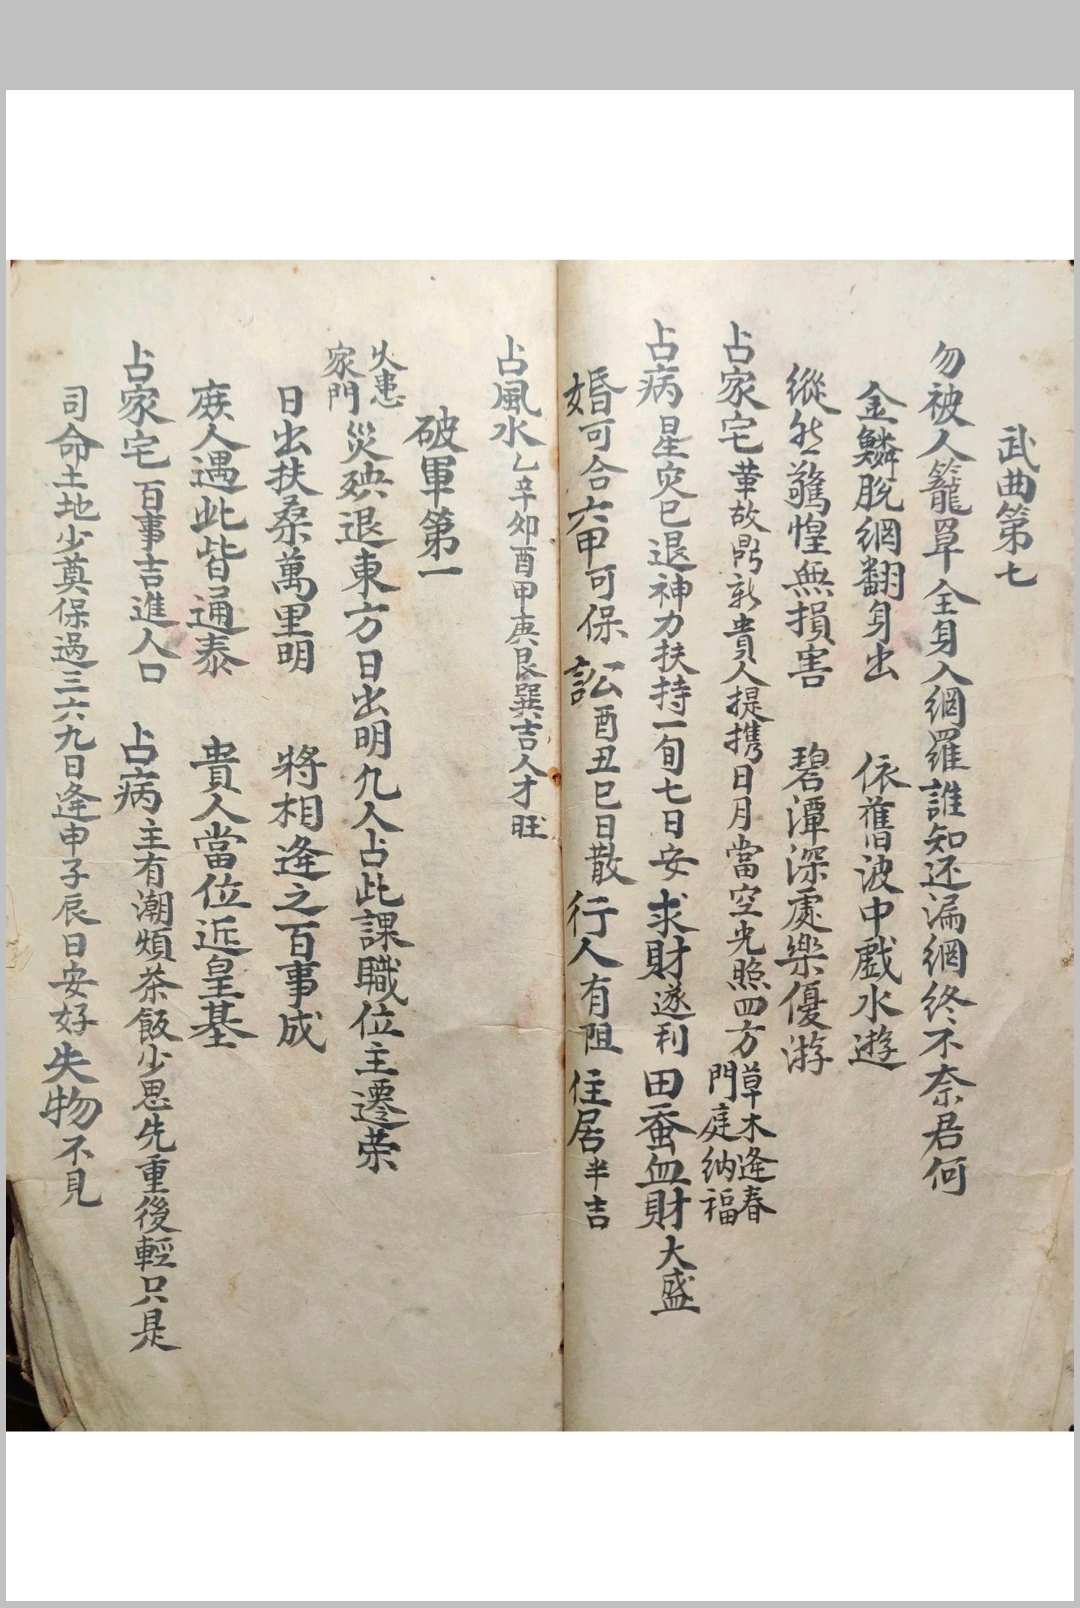 武曲第七
勿被人籠罩全身入網羅誰知还漏網終不奈君何
金鱗脫網翻身出 依舊波中戲水遊
縱然驚惶無損害 碧潭深處樂優游
占家宅革故鼎新貴人提携日月當空光照四方草木逢春門庭納福
占病星灾已退神力扶持一旬七日安求財遂利田蚕血財大盛
婚可合六甲可保訟酉丑巳日散行人有阻住居半吉
占風水乙辛卯酉甲庚艮巽吉人才旺
破軍第一
久患家門災殃退東方日出明凢人占此課職位主遷荣
日出扶桑萬里明 將相逢之百事成
庶人遇此皆通泰 貴人當位近皇基
占家宅百事吉進人口 占病主有潮煩茶飯少思先重後輕只是
司命土地少奠保過三六九日逢申子辰日安好失物不見